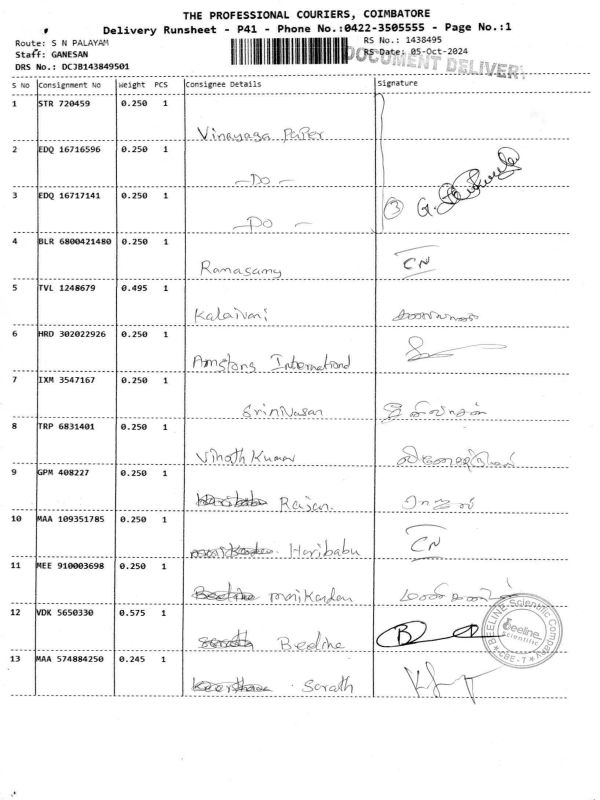 THE PROFESSIONAL COURIERS, COIMBATORE
Delivery Runsheet - P41 - Phone No.:0422-3505555 - Page No.:1
Route: S N PALAYAM
RS No.: 1438495
Staff: GANESAN
RS Date: 05-Oct-2024
DOCUMENT DELIVERY
DRS No.: DCJB143849501
S No Consignment No Weight PCS Consignee Details Signature
1 STR 720459 0.250 1
Vinayaga Paper
2 EDQ 16716596 0.250 1
-Do-
3 EDQ 16717141 0.250 1
-Do-
3 G.
4 BLR 6800421480 0.250 1
Ramasamy CN
5 TVL 1248679 0.495 1
Kalaivani
6 HRD 302022926 0.250 1
Amstong International
7 IXM 3547167 0.250 1
Srinivasan
8 TRP 6831401 0.250 1
Vinoth Kumar
9 GPM 408227 0.250 1
Rajan.
10 MAA 109351785 0.250 1
Haribabu CN
11 MEE 910003698 0.250 1
Beeline manikandan
12 VDK 5650330 0.575 1
Sarath Beeline B
13 MAA 574884250 0.245 1
Sarath
BEELINE Scientific Company
beeline
scientific
CBE-7